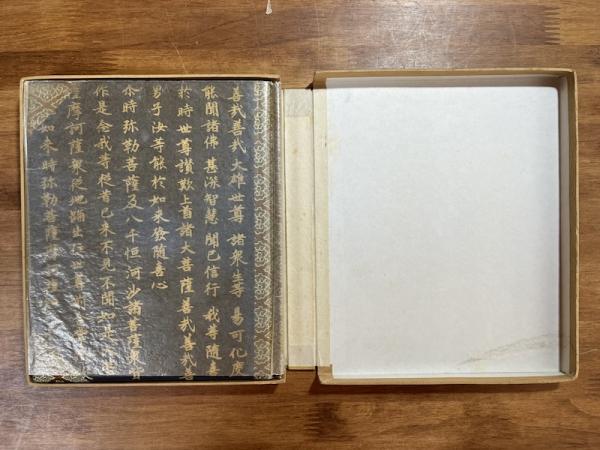 善哉善哉 大雄世尊 諸衆生等 易可化度
能聞諸佛 甚深智慧 聞已信行 我等隨喜
於時世尊讃歎上首諸大菩薩善哉善哉善
男子汝等能於如来發隨喜心
尒時弥勒菩薩及八千恒河沙諸菩薩衆皆
作是念我等從昔已来不見不聞如是
摩訶薩衆從地踊出住世尊前
如来時弥勒菩薩